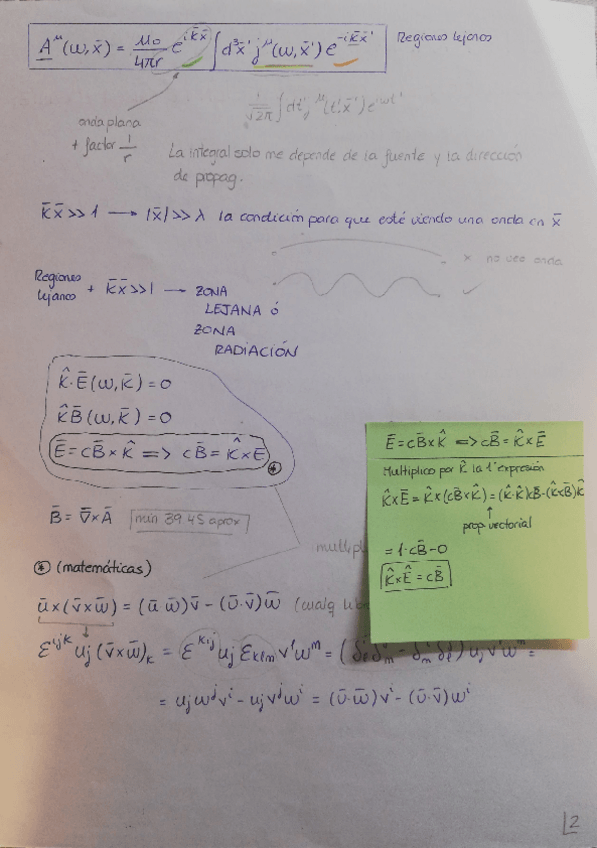 A^μ(ω,x̄) = μ₀/4πr e^{ik̄x̄} ∫ d³x̄' j^μ(ω,x̄') e^{-ik̄x̄'}
Regiones lejanas
1/√2π ∫ dt' j^μ(t',x̄') e^{iωt'}
onda plana
+ factor 1/r
La integral solo me depende de la fuente y la dirección
de propag.
k̄x̄ >> 1 → |x̄| >> λ la condición para que esté viendo una onda en x̄
x no veo onda
Regiones
lejanas + k̄x̄ >> 1 → ZONA
LEJANA ó
ZONA
RADIACIÓN
k̂·Ē(ω,k̄) = 0
k̂B̄(ω,k̄) = 0
Ē = cB̄ × k̂ ⟹ cB̄ = k̂ × Ē
*
B̄ = ∇̄ × Ā
min 39:45 aprox
Ē = cB̄ × k̂ ⟹ cB̄ = k̂ × Ē
Multiplico por k̂ la 1ª expresión
k̂ × Ē = k̂ × (cB̄ × k̂) = (k̂·k̂)cB̄ - (k̂cB̄)k̂
prop. vectorial
= 1·cB̄ - 0
k̂ × Ê = cB̄
* (matemáticas)
ū × (v̄ × w̄) = (ū w̄)v̄ - (ū·v̄)w̄
ε^{ijk} u_j (v̄ × w̄)_k = ε^{kij} u_j ε_{klm} v^l w^m = (δ^i_l δ^j_m - δ^i_m δ^j_l) u_j v^l w^m =
= u_j w^j v^i - u_j v^j w^i = (ū·w̄)v^i - (ū·v̄)w^i
2